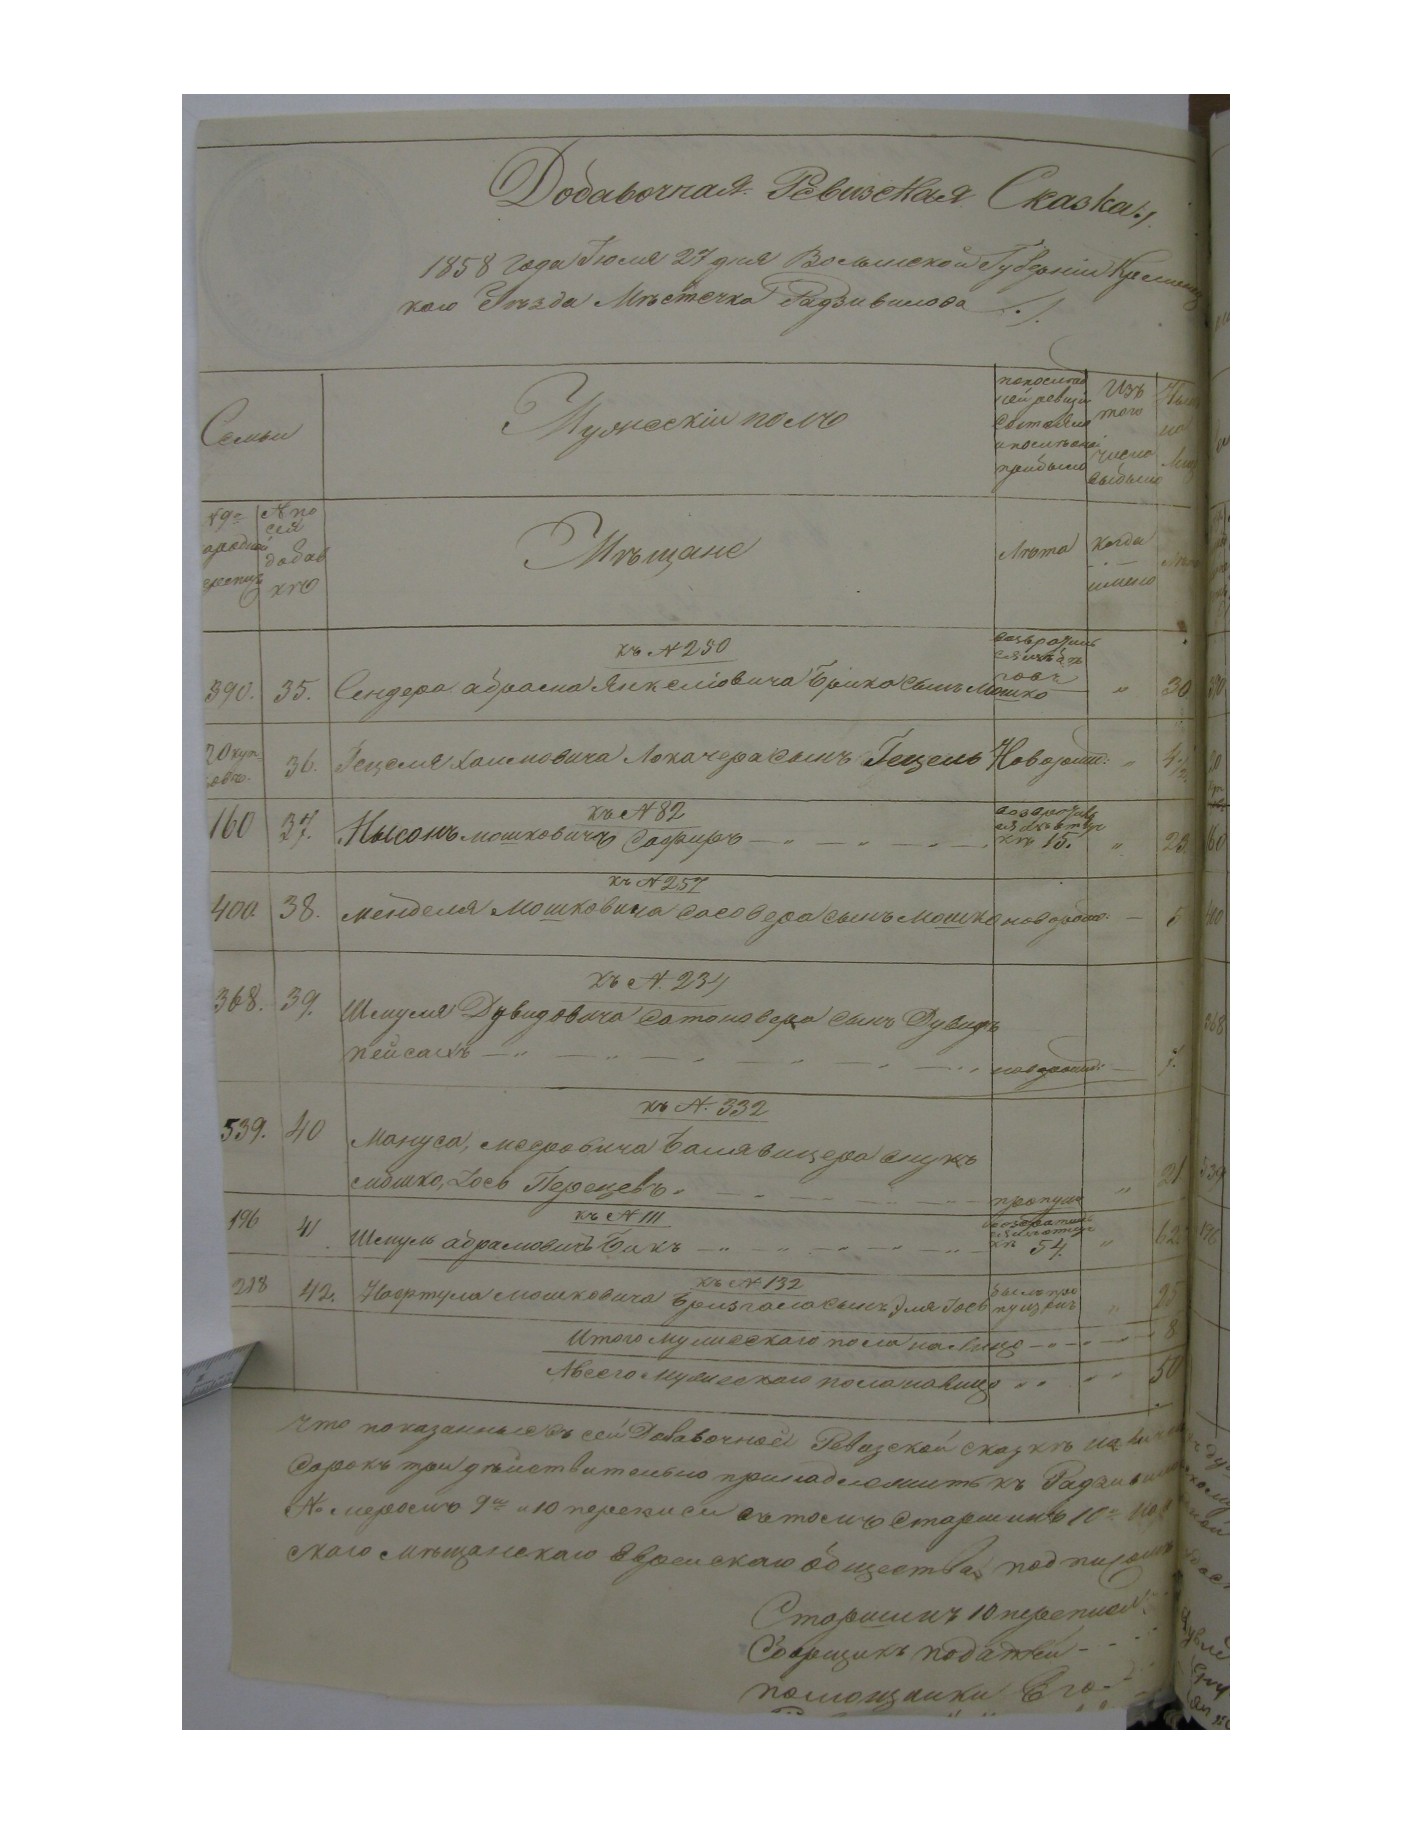 Добавочная Ревизская Сказка
1858 года Июля 27 дня Волынской Губерніи Кременец
каго Уѣзда Мѣстечка Радзивилова
Семьи
Мужескій полъ
по послѣд
ней ревизіи
состояло
и послѣ оной
прибыло
Изъ
того
числа
выбыло
Ныне
на
лицо
№ 9й
народной
переписи
№ по
сей
добав
кѣ
Мѣщане
Лѣта
когда
именно
Лѣта
къ № 230
возвратил
ся изъ бѣг
овъ
390. 35. Сендера Абрама Янкелiовича Брика сынъ Мошко „ 30
20 куп
цовъ. 36. Гецеля Хаимовича Локачера сынъ Гецель Новорож: „ 4 1/2
къ № 82
160 37. Нысонъ Мошковичъ Сафиръ 15. „ 23
къ № 257
400 38. Менделя Мошковича Сасовера сынъ Мошко новорож: 5
къ № 234
368. 39. Шмуля Дувидовича Сатановера сынъ Дувидъ
Пейсахъ новорожд: 7.
къ № 332
539. 40 Мануса, Мееровича Балявицера внукъ
Мошко, Iось Перецевъ. пропущ „ 21
къ № 111
196 41. Шмуль Абрамовичъ Бикъ 54. „ 62
къ № 132
218 42. Нафтула Мошковича Бризгала сынъ Эля Iось былъ про
пущенъ „ 25
Итого мужескаго пола на лицо 8
А всего мужескаго пола на лицо 50
что показанные въ сей Добавочной Ревизской сказкѣ на лицо
Сорокъ три дѣйствительно принадлежитъ къ Радзивилов
Номеромъ 9й и 10 переписи въ томъ Старшинъ 10й на
скаго мѣщанскаго Еврейскаго общества подписомъ
Старшинъ 10 переписи
Сборщикъ податей
помощники Его